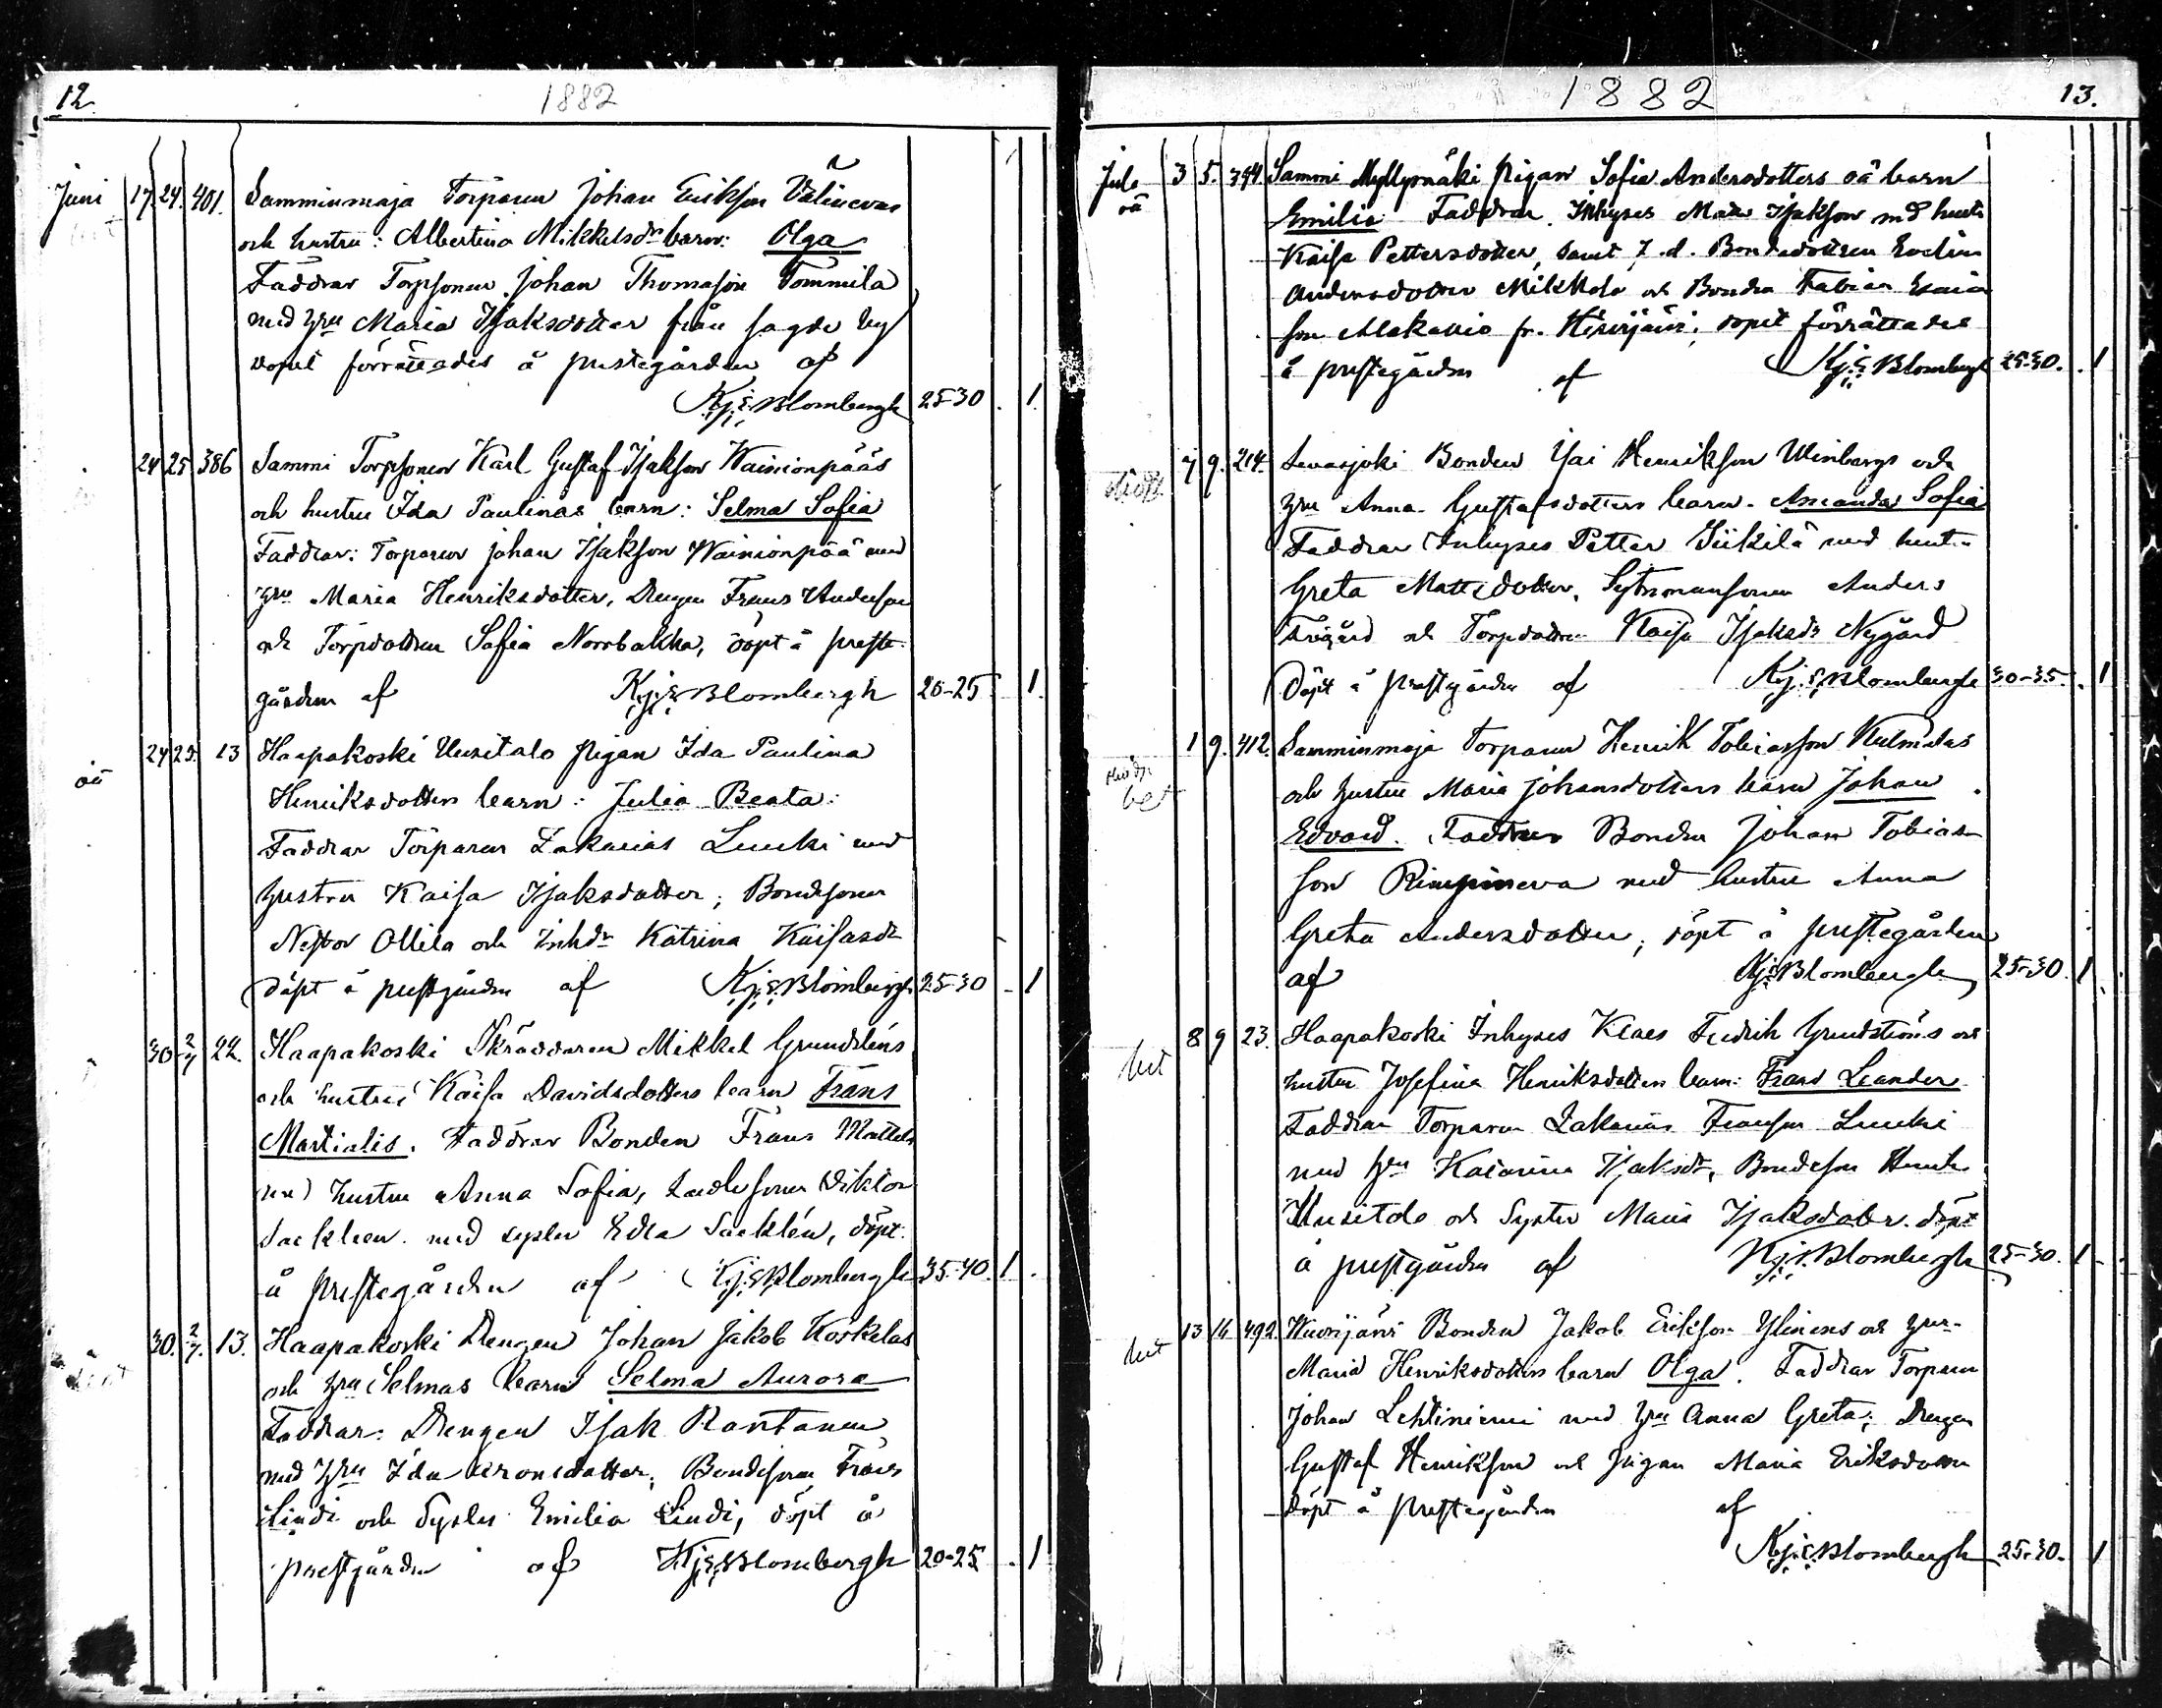 12.
1882
Juni 17 24. 401. Samminmaja Torparen Johan Erikson Välinevas
och hustru: Albertina Mikkelsdrs barn: Olga
Faddrar Torpsonen Johan Thomasson Tommila
med hru Maria Isaksdotter från sagde by
dopet förrättades å prestegården af
Kj: S: Blombergh 25-30 . 1.
24 25 386 Sammi Torpsonen Karl Gustaf Isakson Wainionpääs
och hustru Ida Paulinas barn: Selma Sofia
Faddrar: Torparen Johan Isakson Wainionpää med
hru Maria Henriksdotter, Drengen Frans Anderson
och Torpdottren Sofia Norrbakka, döpt å preste-
gården af Kj: S: Blombergh 20-25 1.
oä 24 25. 13 Haapakoski Uusitalo pigan Ida Paulina
Henriksdotters barn: Julia Beata:
Faddrar Torparen Zakarias Luuki med
hustru Kaisa Isaksdotter; Bondesonen
Nestor Ollila och Inhdr Katrina Kaisasdr
döpt å prestgården af Kj: S: Blombergh 25-30 - 1
30 2/7 22. Haapakoski Skräddaren Mikkel Grundsténs
och hustru Kaisa Davidsdotters barn Frans
Martialis. Faddrar Bonden Frans Mattila
med hustru Anna Sofia, Viktor
Sacklen med syster Edla Sacklén, döpt
å prestegården af Kj: S: Blombergh 35-40. 1.
30. 2/7. 13. Haapakoski Drengen Johan Jakob Koskelas
och hru Selmas barn Selma Aurora
Faddrar: Drengen Isak Rantanen
med hru Ida Aronsdotter; Bondesonen Frans
Lindi och Syster Emilia Lindi, döpt å
prestgården af Kj: S: Blombergh 20-25 . 1
1882
13.
Juli oä 3 5. 394. Sammi Myllymäki pigan Sofia Andersdotters oä barn
Emilia Faddrar. Inhyses Mats Isakson med hustr
Kaisa Pettersdotter, samt f.d. Bondedottren Evelin
Andersdotter Mikkola och Bonden Fabian Esaia
son Alakarvio fr. dopet förrättades
å prestegården af Kj: S: Blombergh 25-30. . 1
7 9. 214. Bonden Isai Henrikson Winbergs och
hru Anna Gustafsdotters barn. Amanda Sofia
Faddrar Inhyses Petter Siikilä med hustru
Greta Mattsdotter. Anders
och Torpdottren Kaisa Isaksdr Nygård
Döpt å prestgården af Kj: S: Blombergh 30-35. . 1
bet 1 9. 412. Samminmaja Torparen Henrik Tobiasson
och hustru Maria Johansdotters barn Johan
Edvard. Faddrar Bonden Johan Tobias-
son Rimpineva med hustru Anna
Greta Andersdotter, döpt å prestegården
af Kj: S: Blombergh 25-30. 1
bet 8 9 23. Haapakoski Inhyses Klaes Fredrik Grundströms och
hustru Josefina Henriksdotters barn: Frans Leander
Faddrar Torparen Zakarias Franson Luuki
med hru Katarina Isaksdr, Bondeson Henrik
Uusitalo och Syster Maria Isaksdotter. döpt
å prestgården af Kj: S: Blombergh 25-30. 1
bet 13 16 492. Bonden Jakob Erikson Ylinens och hru
Maria Henriksdotters barn Olga. Faddrar Torparen
Johan Lehtiniemi med hru Anna Greta; Drengen
Gustaf Henrikson och pigan Maria Eriksdotter
döpt å prestegården af
Kj: S: Blombergh 25-30. 1